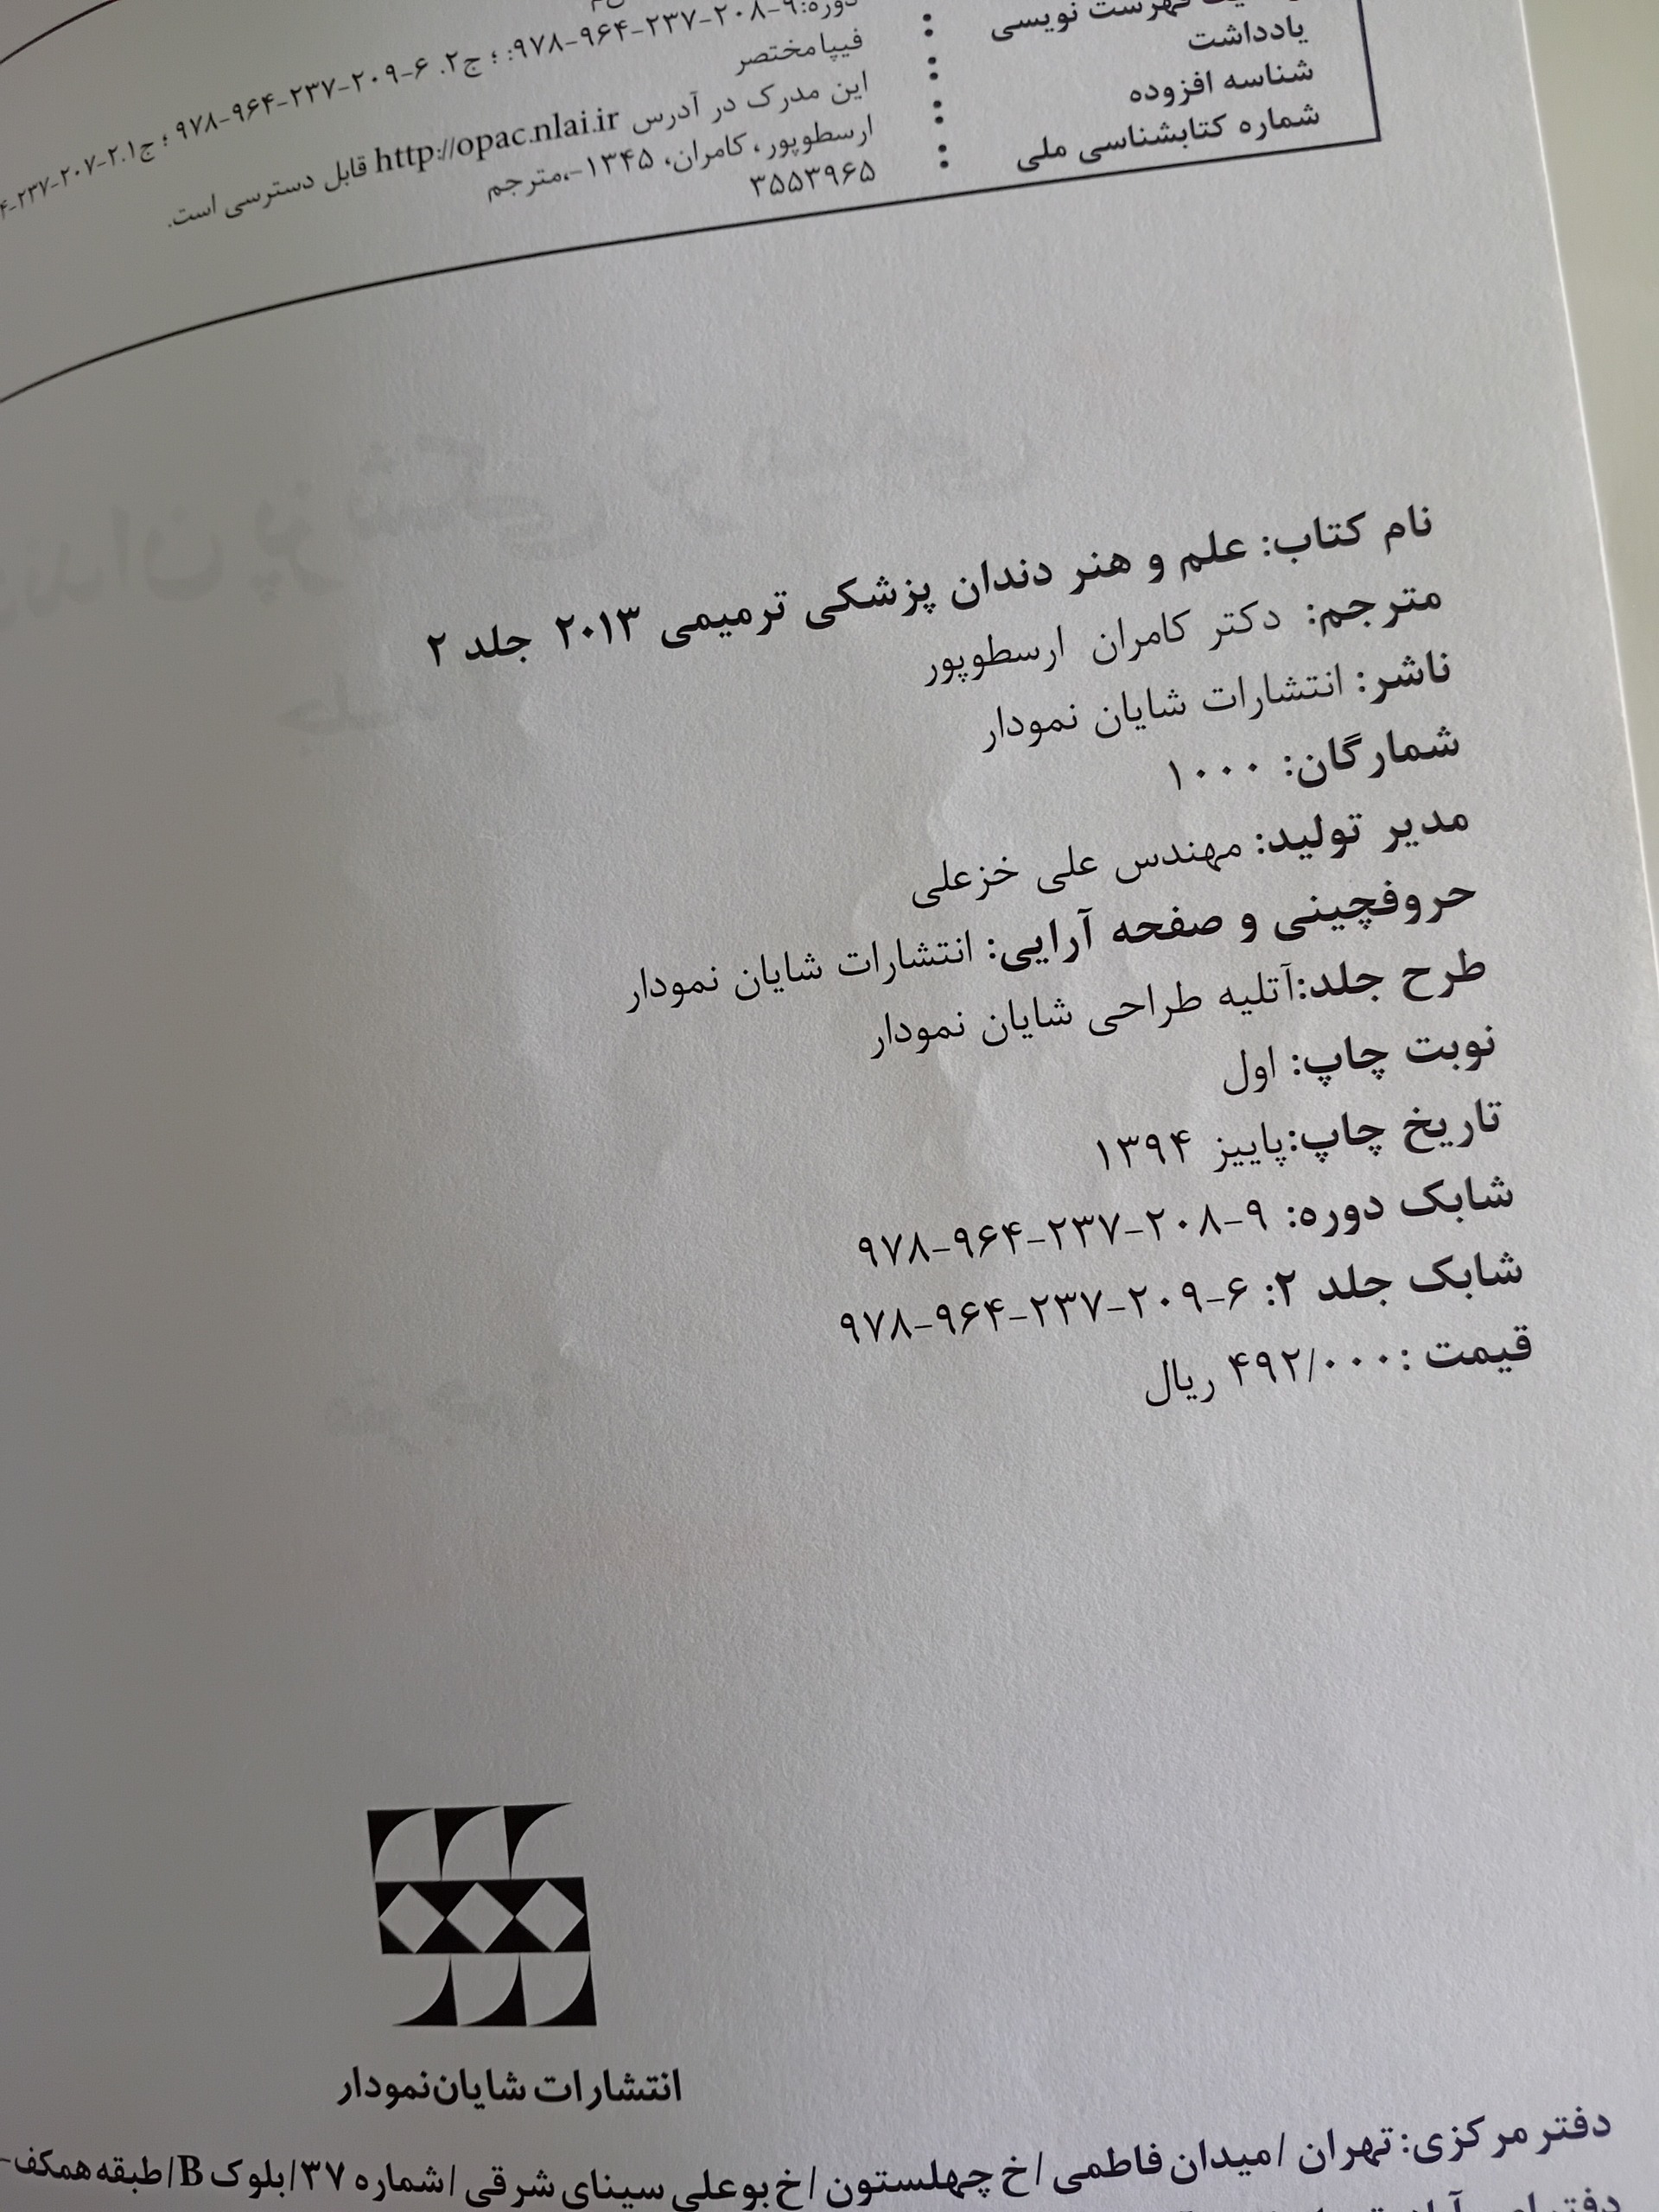 فهرست نویسی :
دوره:۹-۲۰۸-۲۳۷-۹۶۴-۹۷۸: ؛ ج۲. ۶-۲۰۹-۲۳۷-۹۶۴-۹۷۸ ؛ ج۱.۲-۲۰۷-۲۳۷-
یادداشت : فیپا مختصر
این مدرک در آدرس http://opac.nlai.ir قابل دسترسی است.
شناسه افزوده : ارسطوپور، کامران، ۱۳۴۵-،مترجم
شماره کتابشناسی ملی : ۳۵۵۳۹۶۵
نام کتاب: علم و هنر دندان پزشکی ترمیمی ۲۰۱۳ جلد ۲
مترجم: دکتر کامران ارسطوپور
ناشر: انتشارات شایان نمودار
شمارگان: ۱۰۰۰
مدیر تولید: مهندس علی خزعلی
حروفچینی و صفحه آرایی: انتشارات شایان نمودار
طرح جلد:آتلیه طراحی شایان نمودار
نوبت چاپ: اول
تاریخ چاپ:پاییز ۱۳۹۴
شابک دوره: ۹-۲۰۸-۲۳۷-۹۶۴-۹۷۸
شابک جلد ۲: ۶-۲۰۹-۲۳۷-۹۶۴-۹۷۸
قیمت :۴۹۲/۰۰۰ ریال
انتشارات شایان‌نمودار
دفتر مرکزی: تهران /میدان فاطمی /خ چهلستون /خ بوعلی سینای شرقی /شماره ۳۷/بلوک B/طبقه همکف-